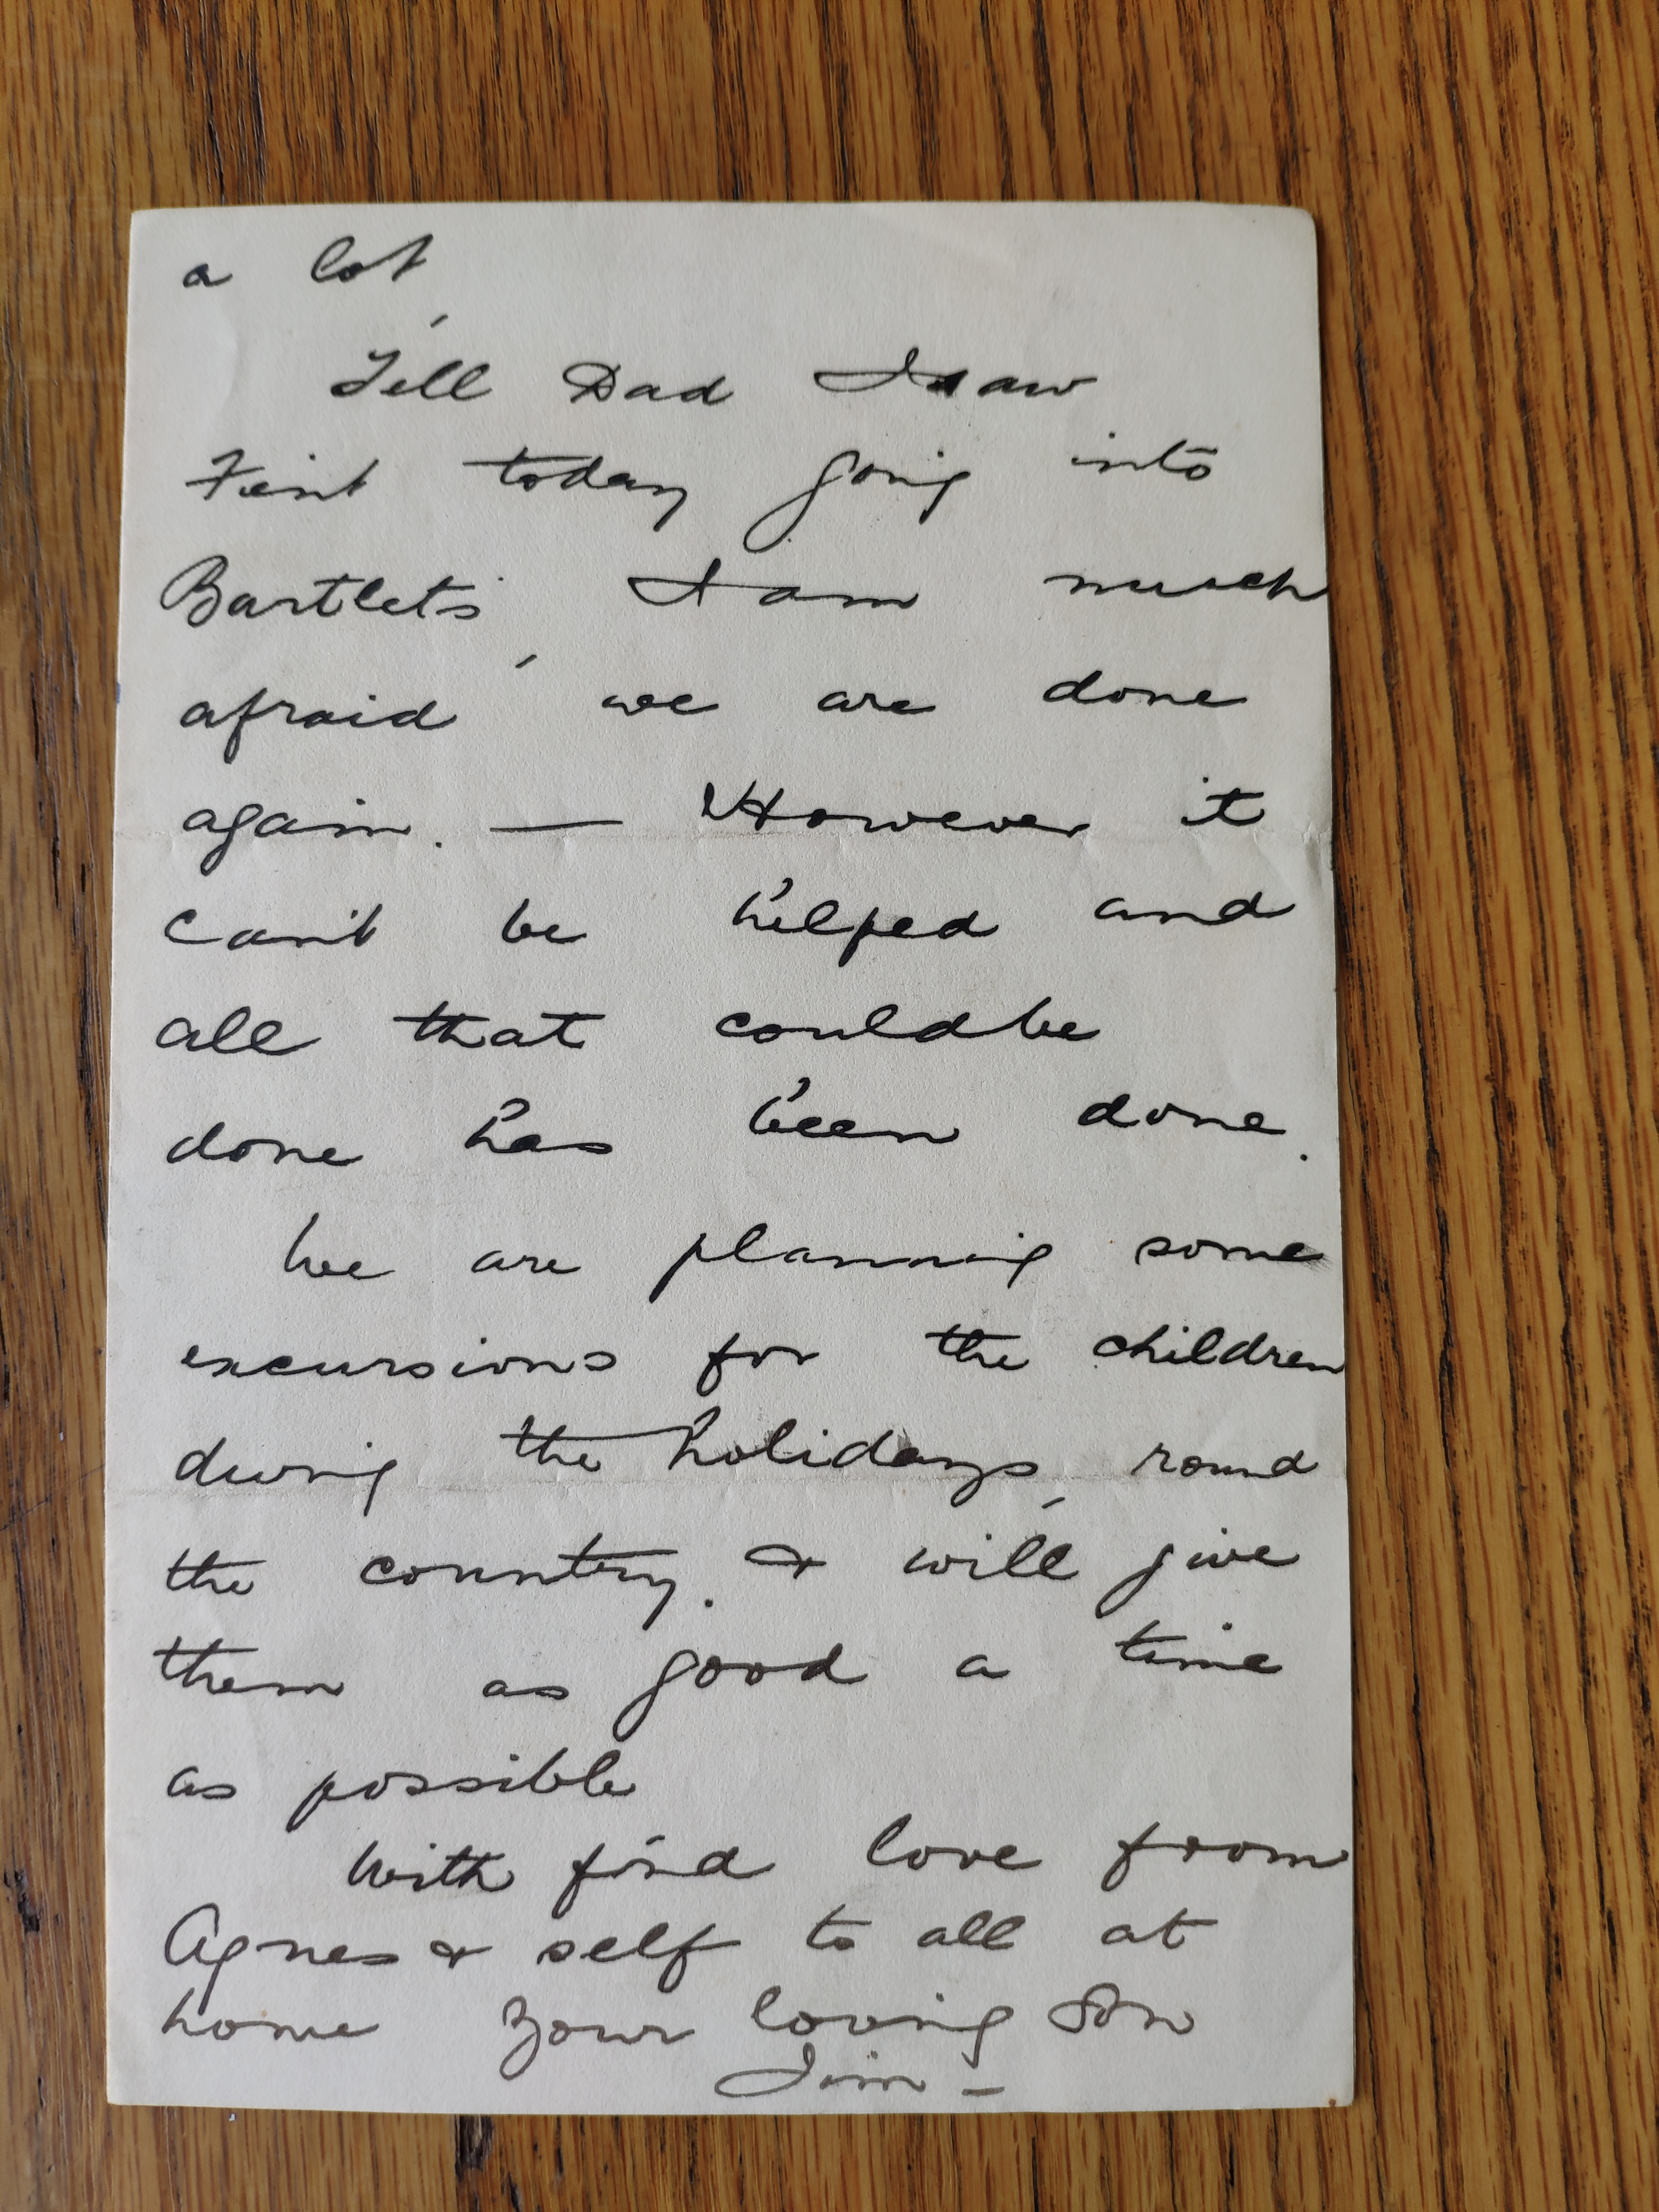 a lot,
Tell Dad I saw
today going into
Bartlets' I am much
afraid, we are done
again. — However it
can't be helped and
all that could be
done has been done.
We are planning some
excursions for the children
during the holidays, round
the country. & will give
them as good a time
as possible
With fond love from
Agnes & self to all at
home Your loving Son
Jim –